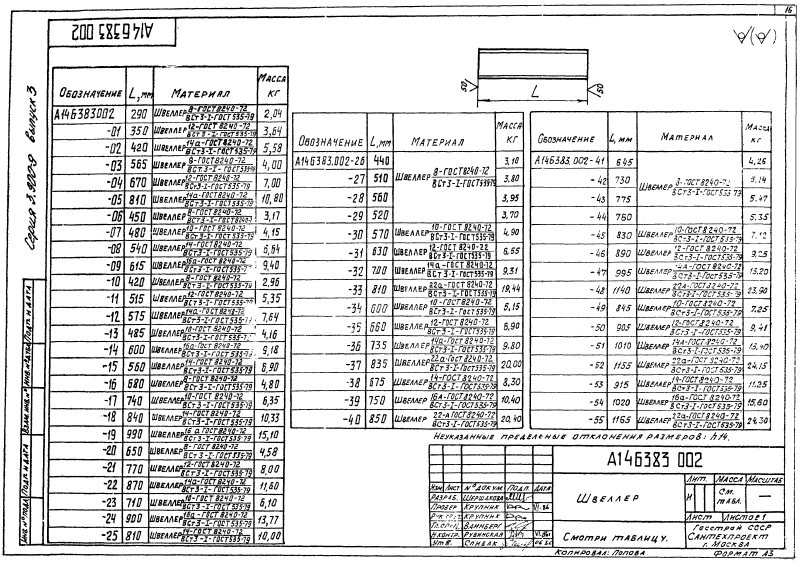 16
А14Б383 002
Серия 3.900-9 Выпуск 3
L
50
50
Обозначение L,мм Материал Масса кг
А14Б383.002 290 Швеллер 8-ГОСТ 8240-72 / ВСт3-I-ГОСТ 535-79 2,04
-01 350 Швеллер 12-ГОСТ 8240-72 / ВСт3-I-ГОСТ 535-79 3,64
-02 420 Швеллер 14а-ГОСТ 8240-72 / ВСт3-I-ГОСТ 535-79 5,58
-03 565 Швеллер 8-ГОСТ 8240-72 / ВСт3-I-ГОСТ 535-79 4,00
-04 670 Швеллер 12-ГОСТ 8240-72 / ВСт3-I-ГОСТ 535-79 7,00
-05 810 Швеллер 14а-ГОСТ 8240-72 / ВСт3-I-ГОСТ 535-79 10,80
-06 450 Швеллер 8-ГОСТ 8240-72 / ВСт3-I-ГОСТ 535-79 3,17
-07 480 Швеллер 10-ГОСТ 8240-72 / ВСт3-I-ГОСТ 535-79 4,15
-08 540 Швеллер 14-ГОСТ 8240-72 / ВСт3-I-ГОСТ 535-79 6,64
-09 615 Швеллер 16а-ГОСТ 8240-72 / ВСт3-I-ГОСТ 535-79 9,40
-10 420 Швеллер 8-ГОСТ 8240-72 / ВСт3-I-ГОСТ 535-79 2,96
-11 515 Швеллер 12-ГОСТ 8240-72 / ВСт3-I-ГОСТ 535-79 5,35
-12 575 Швеллер 14а-ГОСТ 8240-72 / ВСт3-I-ГОСТ 535-79 7,64
-13 485 Швеллер 10-ГОСТ 8240-72 / ВСт3-I-ГОСТ 535-79 4,16
-14 600 Швеллер 16а-ГОСТ 8240-72 / ВСт3-I-ГОСТ 535-79 9,18
-15 560 Швеллер 14-ГОСТ 8240-72 / ВСт3-I-ГОСТ 535-79 6,90
-16 680 Швеллер 8-ГОСТ 8240-72 / ВСт3-I-ГОСТ 535-79 4,80
-17 740 Швеллер 10-ГОСТ 8240-72 / ВСт3-I-ГОСТ 535-79 6,35
-18 840 Швеллер 14-ГОСТ 8240-72 / ВСт3-I-ГОСТ 535-79 10,33
-19 990 Швеллер 16а-ГОСТ 8240-72 / ВСт3-I-ГОСТ 535-79 15,10
-20 650 Швеллер 8-ГОСТ 8240-72 / ВСт3-I-ГОСТ 535-79 4,58
-21 770 Швеллер 12-ГОСТ 8240-72 / ВСт3-I-ГОСТ 535-79 8,00
-22 870 Швеллер 14а-ГОСТ 8240-72 / ВСт3-I-ГОСТ 535-79 11,60
-23 710 Швеллер 10-ГОСТ 8240-72 / ВСт3-I-ГОСТ 535-79 6,10
-24 900 Швеллер 16а-ГОСТ 8240-72 / ВСт3-I-ГОСТ 535-79 13,77
-25 810 Швеллер 14-ГОСТ 8240-72 / ВСт3-I-ГОСТ 535-79 10,00
Обозначение L,мм Материал Масса кг
А14Б383.002-26 440 3,10
-27 510 Швеллер 8-ГОСТ 8240-72 / ВСт3-I-ГОСТ 535-79 3,80
-28 560 3,95
-29 520 3,70
-30 570 Швеллер 10-ГОСТ 8240-72 / ВСт3-I-ГОСТ 535-79 4,90
-31 630 Швеллер 12-ГОСТ 8240-72 / ВСт3-I-ГОСТ 535-79 6,55
-32 700 Швеллер 14а-ГОСТ 8240-72 / ВСт3-I-ГОСТ 535-79 9,31
-33 810 Швеллер 22а-ГОСТ 8240-72 / ВСт3-I-ГОСТ 535-79 19,44
-34 600 Швеллер 10-ГОСТ 8240-72 / ВСт3-I-ГОСТ 535-79 5,15
-35 660 Швеллер 12-ГОСТ 8240-72 / ВСт3-I-ГОСТ 535-79 6,90
-36 735 Швеллер 14а-ГОСТ 8240-72 / ВСт3-I-ГОСТ 535-79 9,80
-37 835 Швеллер 22а-ГОСТ 8240-72 / ВСт3-I-ГОСТ 535-79 20,00
-38 675 Швеллер 14-ГОСТ 8240-72 / ВСт3-I-ГОСТ 535-79 8,30
-39 750 Швеллер 16А-ГОСТ 8240-72 / ВСт3-I-ГОСТ 535-79 10,40
-40 850 Швеллер 22-А ГОСТ 8240-72 / ВСт3-I-ГОСТ 535-79 20,40
Обозначение L,мм Материал Масса кг
А14Б383.002-41 645 4,26
-42 730 Швеллер 8-ГОСТ 8240-72 / ВСт3-I-ГОСТ 535-79 5,14
-43 775 5,47
-44 760 5,35
-45 830 Швеллер 10-ГОСТ 8240-72 / ВСт3-I-ГОСТ 535-79 7,12
-46 890 Швеллер 12-ГОСТ 8240-72 / ВСт3-I-ГОСТ 535-79 9,25
-47 995 Швеллер 14А-ГОСТ 8240-72 / ВСт3-I-ГОСТ 535-79 13,20
-48 1140 Швеллер 22а-ГОСТ 8240-72 / ВСт3-I-ГОСТ 535-79
-49 845 Швеллер 10-ГОСТ 8240-72 / ВСт3-I-ГОСТ 535-79 7,25
-50 905 Швеллер 12-ГОСТ 8240-72 / ВСт3-I-ГОСТ 535-79 9,41
-51 1010 Швеллер 14А-ГОСТ 8240-72 / ВСт3-I-ГОСТ 535-79 13,40
-52 1155 Швеллер 22а-ГОСТ 8240-72 / ВСт3-I-ГОСТ 535-79 24,15
-53 915 Швеллер 14-ГОСТ 8240-72 / ВСт3-I-ГОСТ 535-79 11,25
-54 1020 Швеллер 16а-ГОСТ 8240-72 / ВСт3-I-ГОСТ 535-79 15,60
-55 1165 Швеллер 22а-ГОСТ 8240-72 / ВСт3-I-ГОСТ 535-79 24,30
Неуказанные предельные отклонения размеров: h14.
А14Б383 002
Изм Лист № докум. Подп. Дата
Разраб. Шершакова
Провер Крупник
Р-к гр. Крупник
Гл.спец. Вайнберг
Н.контр. Рувинская
Утв. Спивак
Швеллер
Смотри таблицу.
Лит. Масса Масштаб
И См. табл. —
Лист Листов 1
Госстрой СССР
Сантехпроект
г. Москва
Копировал: Попова Формат А3
Инв.№ подл. Подп. и дата Взам.инв.№ Инв.№ дубл. Подп. и дата